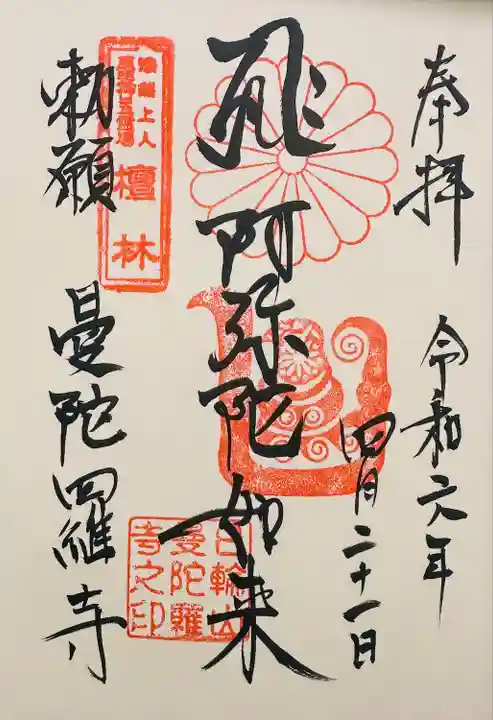 奉拝
令和元年
四月二十一日
阿弥陀如来
日輪山
曼陀羅
寺之印
上人
檀林
勅願
曼陀羅寺